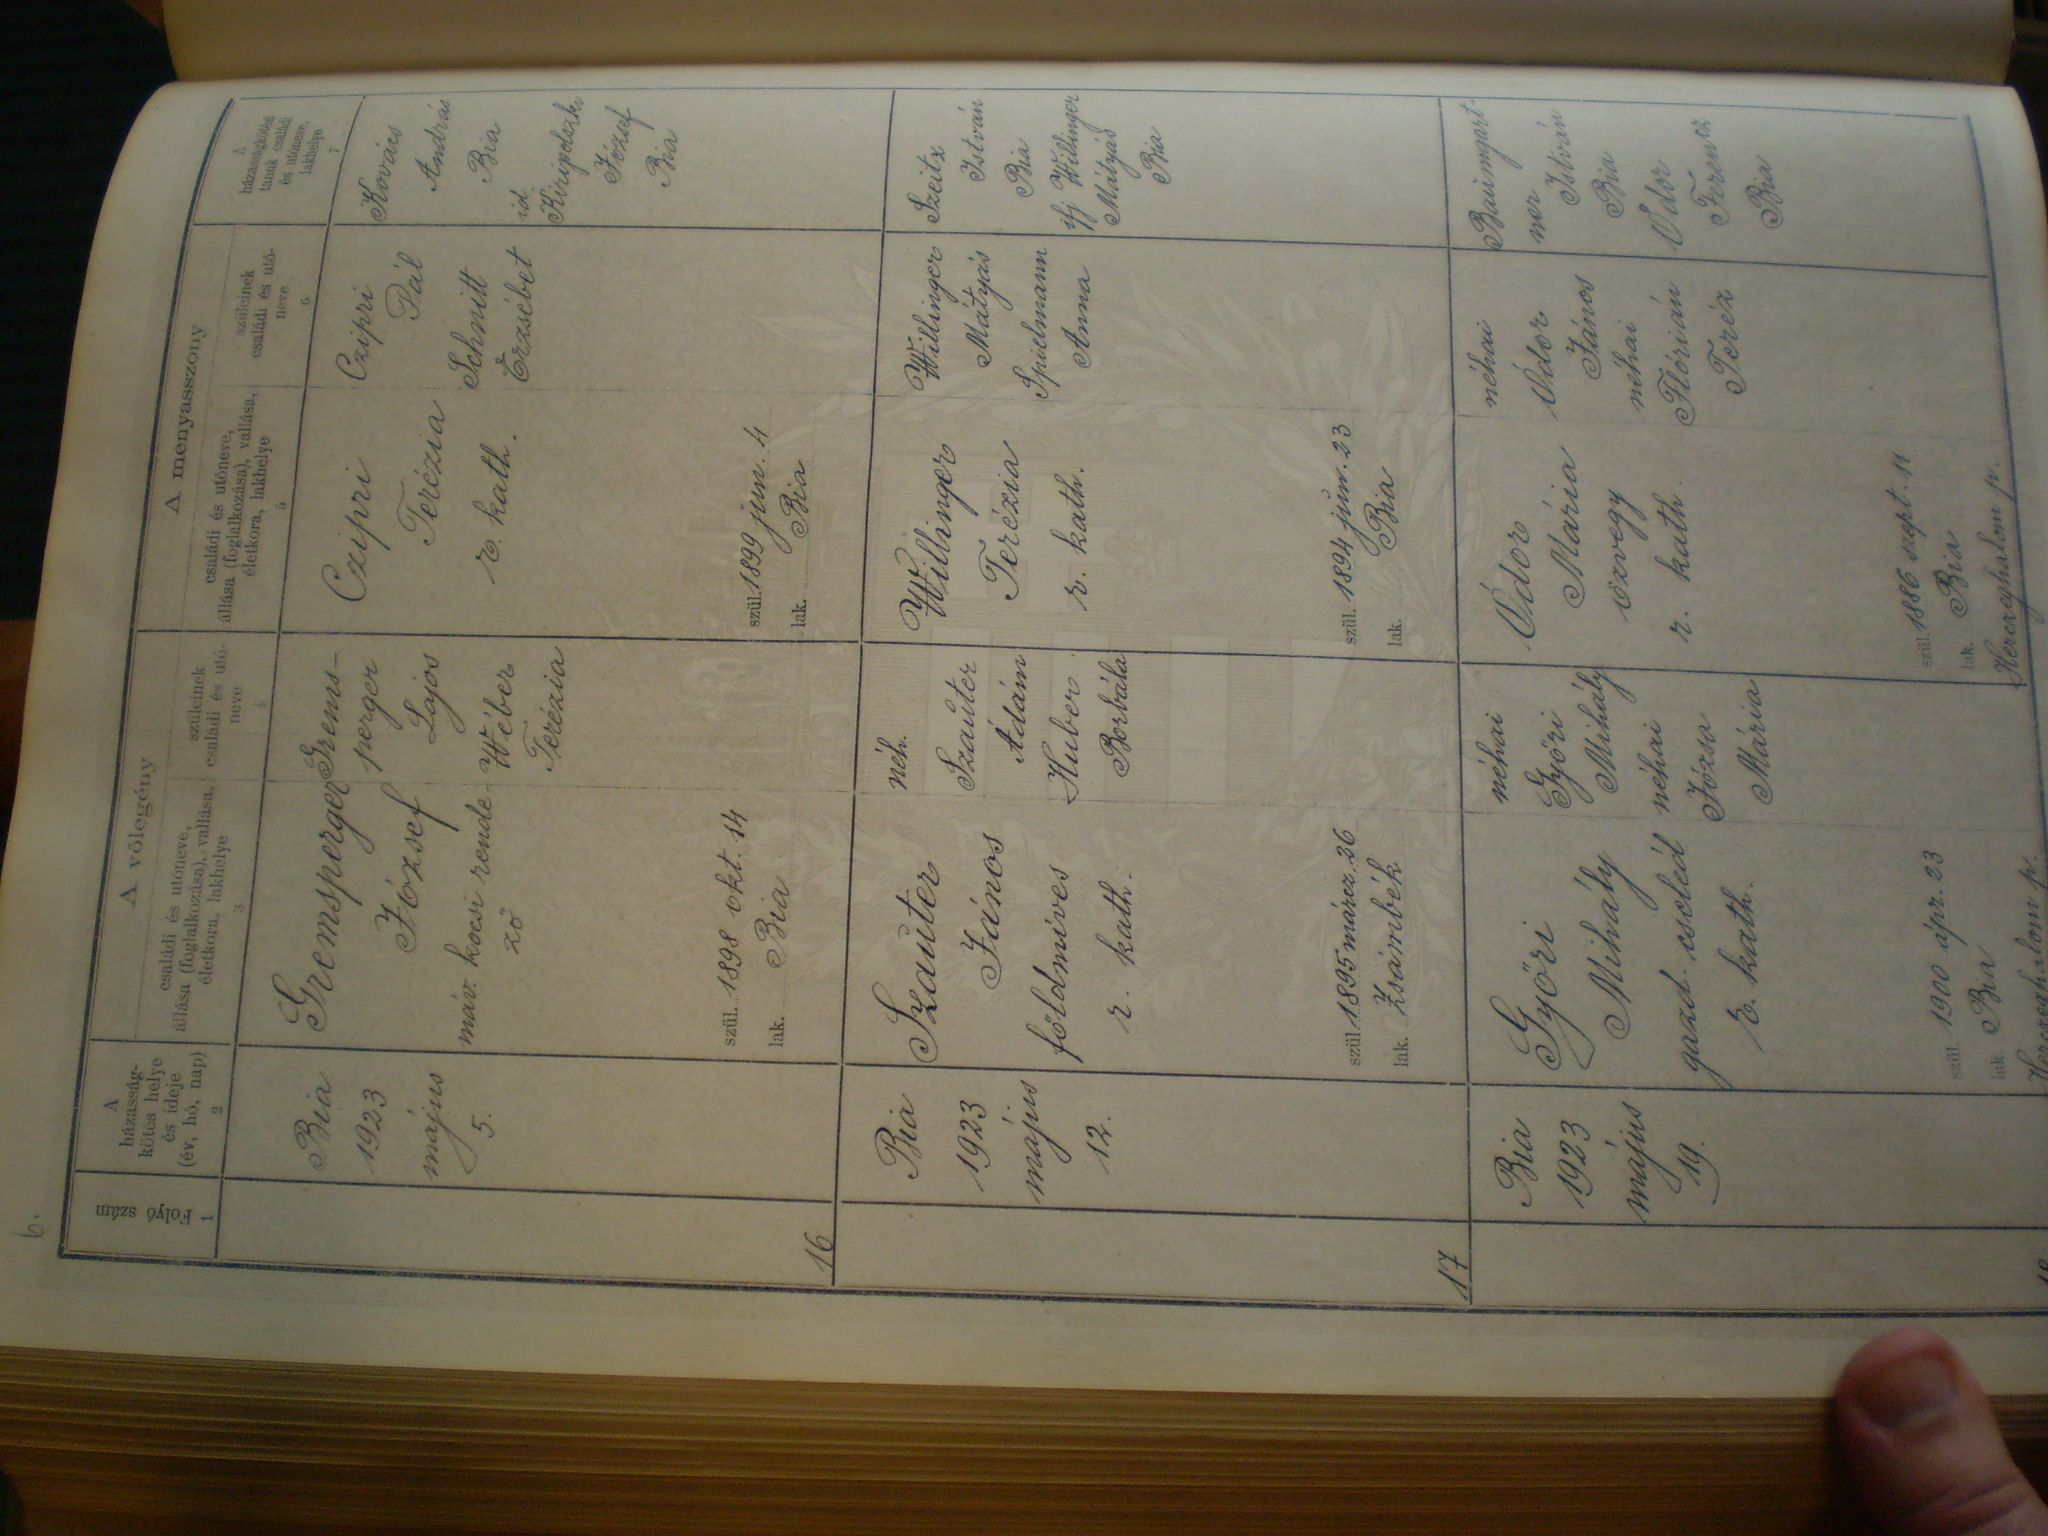 6.
Folyó szám
1
A
házasság-
kötés helye
és ideje
(év, hó, nap)
2
A vőlegény
családi és utóneve,
állása (foglalkozása), vallása,
életkora, lakhelye
3
szüleinek
családi és utó-
neve
4
A menyasszony
családi és utóneve,
állása (foglalkozása), vallása,
életkora, lakhelye
5
szüleinek
családi és utó-
neve
6
A
házasságkötési
tanuk családi
és utóneve,
lakhelye
7
16
Bia
1923
május
5.
Gremsperger
József
máv. kocsi rende-
ző
szül. 1898 okt. 14
lak. Bia
Grems-
perger
Lajos
Wéber
Terézia
Czipri
Terézia
r. kath.
szül. 1899 jun. 4
lak. Bia
Czipri
Pál
Schnitt
Erzsébet
Kovács
András
Bia
id.
Kiripolszki
József
Bia
17
Bia
1923
május
12.
Szauter
János
földmíves
r. kath.
szül. 1895 márcz. 26
lak. Zsámbék
néh.
Szauter
Ádám
Huber
Borbála
Willinger
Terézia
r. kath.
szül. 1894 jun. 23
lak. Bia
Willinger
Mátyás
Spielmann
Anna
Szeitz
István
Bia
ifj Willinger
Mátyás
Bia
18
Bia
1923
május
19.
Győri
Mihály
gazd. cseléd
r. kath.
szül. 1900 ápr. 23
lak. Bia
Herczeghalom p.
néhai
Győri
Mihály
néhai
Józsa
Mária
Ódor
Mária
özvegy
r. kath.
szül. 1886 szept. 11
lak. Bia
Herczeghalom p.
néhai
Ódor
János
néhai
Flórián
Teréz
Baumgart-
ner
István
Bia
Ódor
Ferencz
Bia